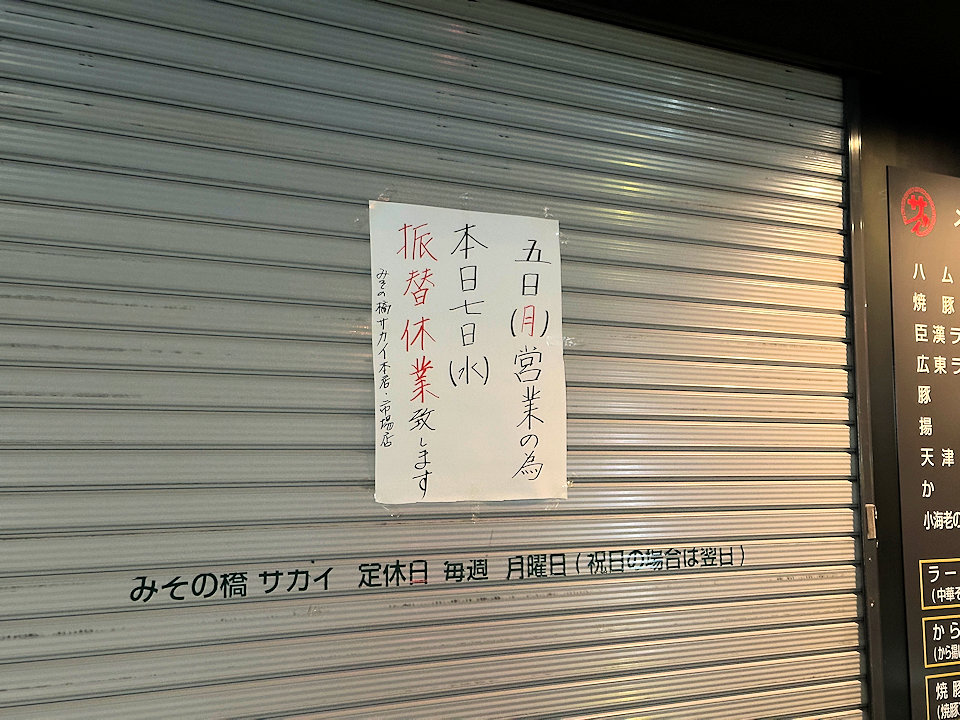 五日(月)営業の為
本日七日(水)
振替休業致します
みその橋サカイ本店・市場店
みその橋 サカイ 定休日 毎週 月曜日(祝日の場合は翌日)
サカイ
ハム
焼豚
臣漢ラ
広東ラ
豚
揚
天津
か
小海老の
ラー
(中華そ
から
(から揚
焼豚
(焼豚